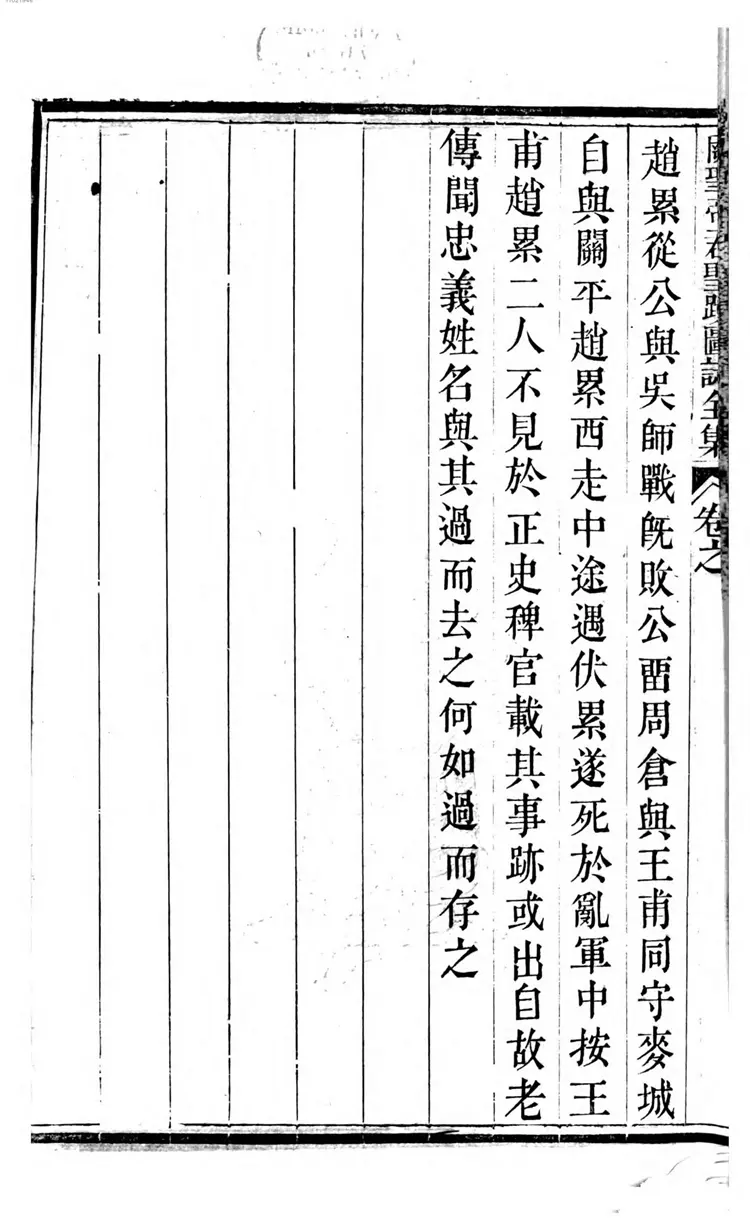 關聖帝君聖蹟圖誌全集 卷之
趙累從公與吳師戰旣敗公畱周倉與王甫同守麥城
自與關平趙累西走中途遇伏累遂死於亂軍中按王
甫趙累二人不見於正史稗官載其事跡或出自故老
傳聞忠義姓名與其過而去之何如過而存之